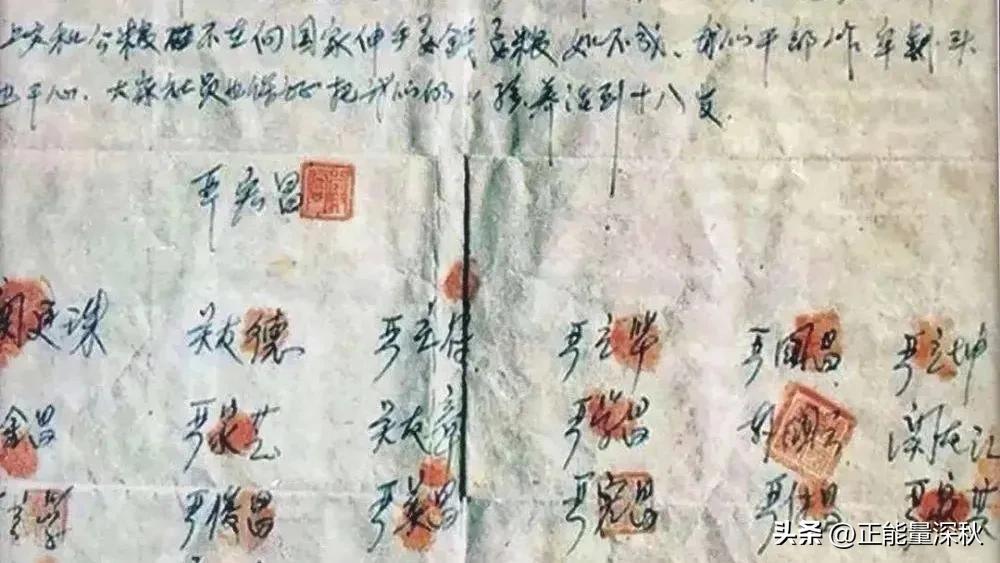 上交和公粮不在向国家伸手要钱要粮如不成、我们干部作牢刹头
也干心、大家社员也保证把我们的小孩养活到十八岁.
严宏昌
关廷珠 关友德 严立符 严立华 严国昌 严立坤
金昌 严家芝 关友章 严学昌 韩国云 关友江
立学 严俊昌 严美昌 严宏昌 严付昌 严家其
头条 @正能量深秋